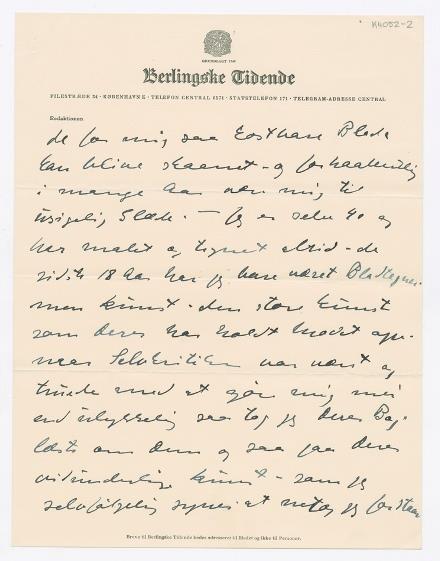 K4052-2
GRUNDLAGT 1749
Berlingske Tidende
PILESTRÆDE 34 · KØBENHAVN K · TELEFON CENTRAL 8571 · STATSTELEFON 171 · TELEGRAM-ADRESSE CENTRAL
Redaktionen
de for mig saa kostbare Blade
kan blive skaanet - og forhaabentlig
i mange Aar være mig til
usigelig Glæde. — Jeg er selv 40 og
har malet og tegnet altid - de
sidste 18 Aar har jeg bare været Bladtegner
men kunst - den store kunst
som Deres har holdt modet oppe
naar Selvkritiken var værst og
truede med at gøre mig mer
end ulykkelig saa tog jeg Deres Bog
læste om dem og saa paa Deres
vidunderlige kunst - som jeg
selvfølgelig synes at netop jeg forstaar
Breve til Berlingske Tidende bedes adresseret til Bladet og ikke til Personer.